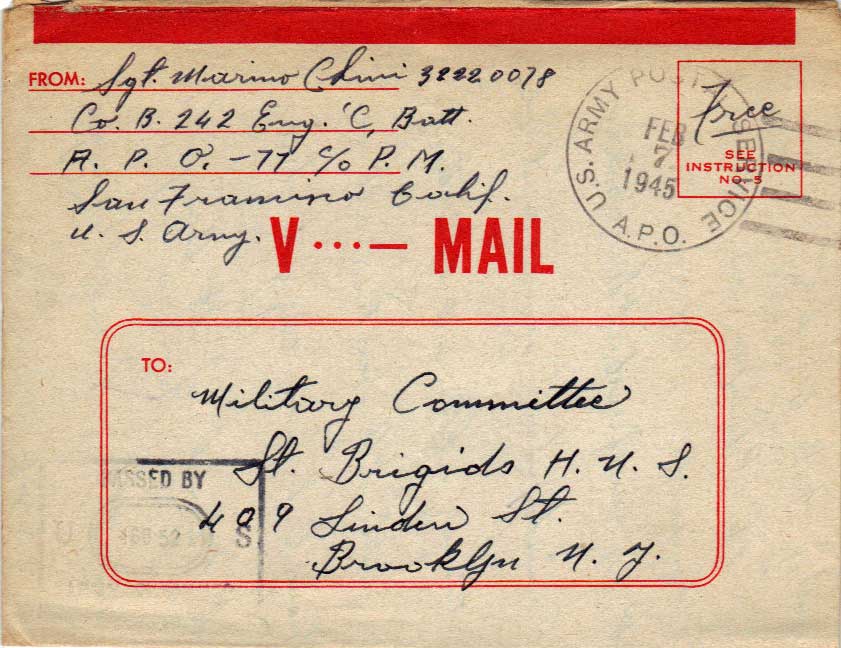 FROM: Sgt. Marino Chini 32220078
Co. B. 242 Eng. 'C, Batt.
A. P. O. - 77 c/o P. M.
San Francisco Calif.
U. S. Army.
U.S. ARMY POSTAL SERVICE
A.P.O.
FEB
7
1945
Free
SEE
INSTRUCTION
NO. 5
V ···— MAIL
TO:
Military Committee
St. Brigids H. N. S.
409 Linden St.
Brooklyn N. Y.
PASSED BY
S